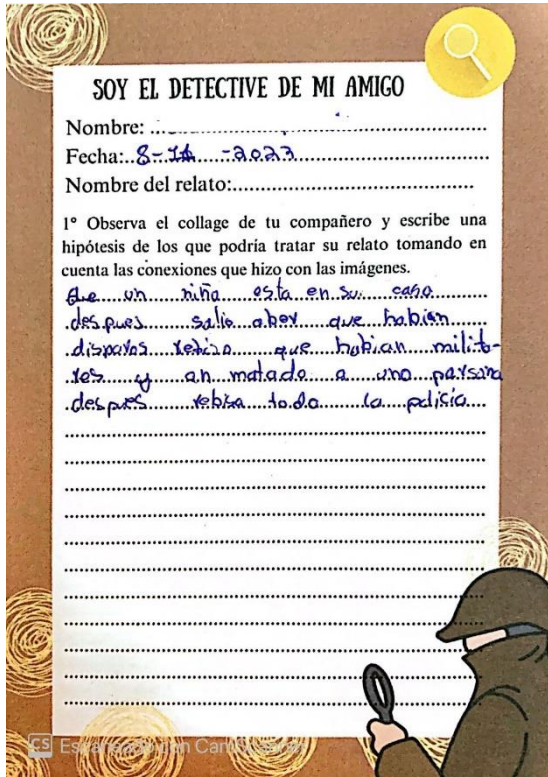 SOY EL DETECTIVE DE MI AMIGO
Nombre:
Fecha: 8- -2023
Nombre del relato:
1° Observa el collage de tu compañero y escribe una
hipótesis de los que podría tratar su relato tomando en
cuenta las conexiones que hizo con las imágenes.
un niño esta en su casa
despues salio aber que habian
disparos rebizo que habian milita-
res y an matado a una parsona
despues rebiza toda la policia
CS Escaneado con CamScanner